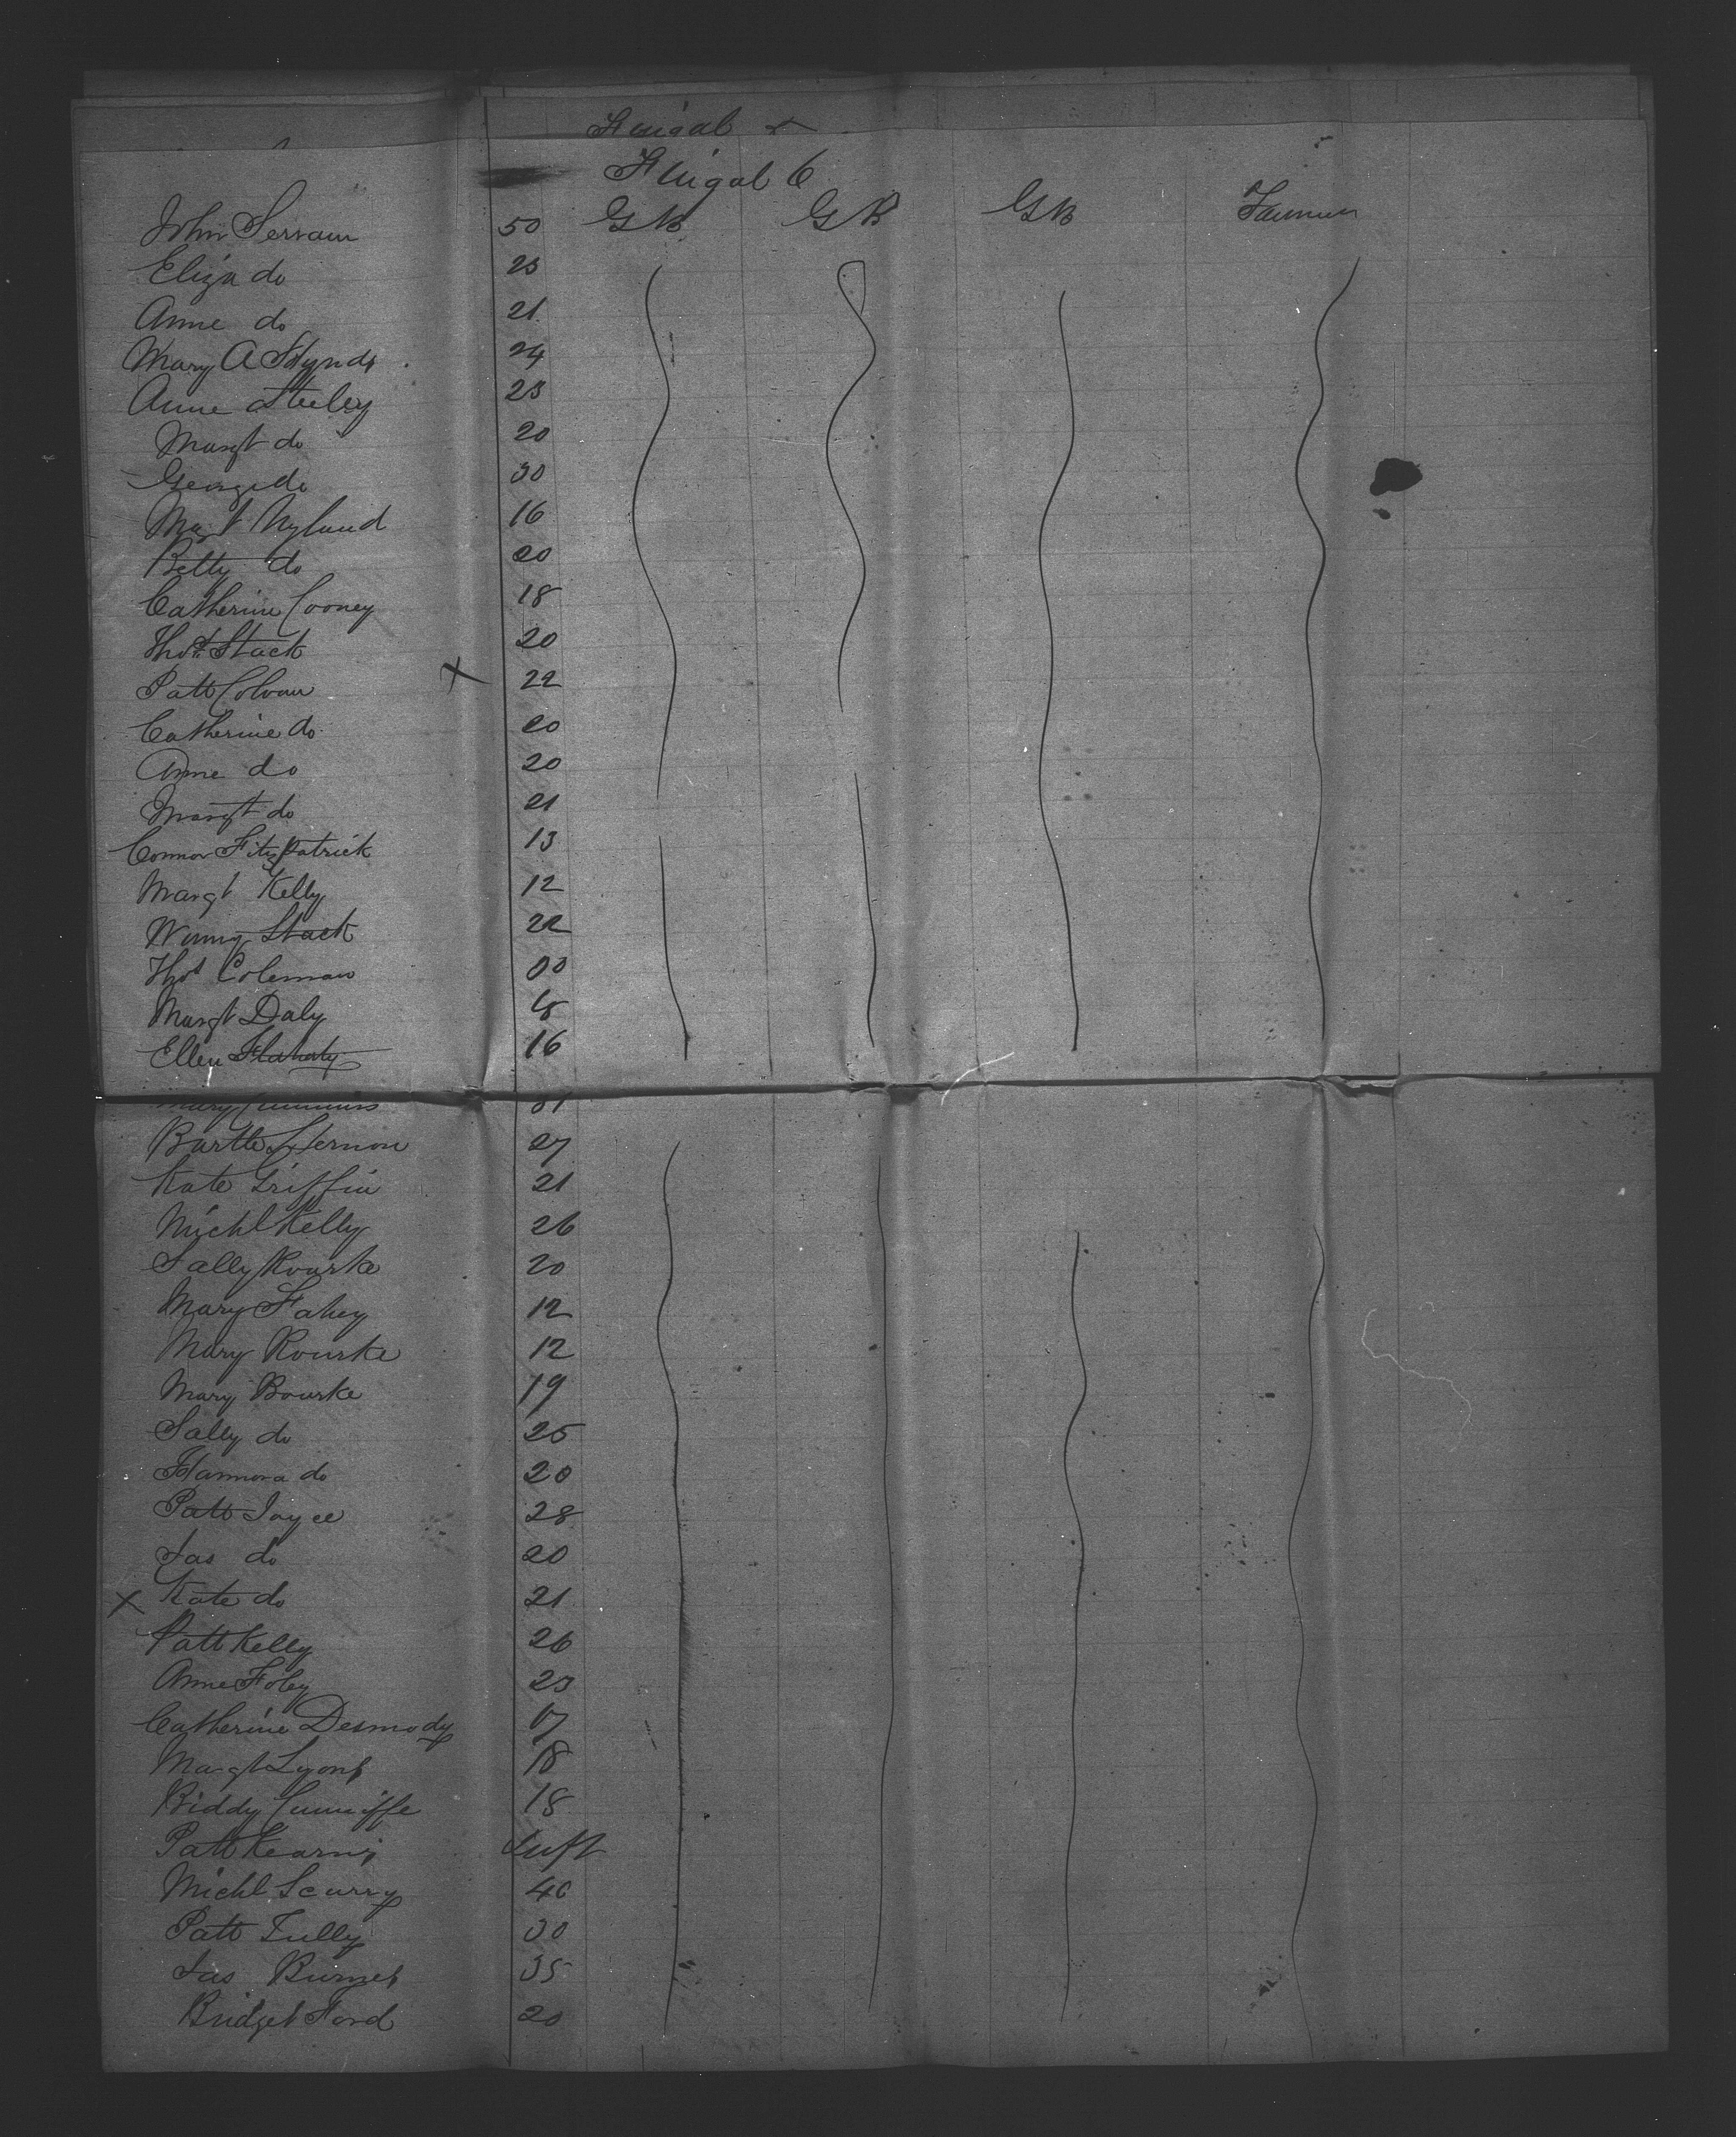 Fingal
Fingal 6
John 50 GB GB GB Farmer
Eliza do 23
Anne do 21
Mary A Hynds 24
Anne Steeley 23
Margt do 20
George do 30
Margt Nyland 16
Betty do 20
Catherine Cooney 18
Thos Stack 20
Patt x 22
Catherine do 20
Anne do 20
Margt do 21
Connor Fitzpatrick 13
Margt Kelly 12
Winny Stack 22
Thos Coleman 00
Margt Daly 18
Ellen Flaherty 16
Mary Cummins 31
Bartle Hernon 27
Kate Griffin 21
Michl Kelly 26
Sally Rourke 20
Mary Fahey 12
Mary Rourke 12
Mary Bourke 19
Sally do 25
Hannora do 20
Patt Joyce 28
Jas do 20
x Kate do 21
Patt Kelly 26
Anne Foley 23
Catherine Desmody 17
Margt Lyons 18
Biddy Cunniffe 18
Patt Kearns Inft
Michl Scurry 40
Patt Tully 30
Jas 35
Bridget Ford 20